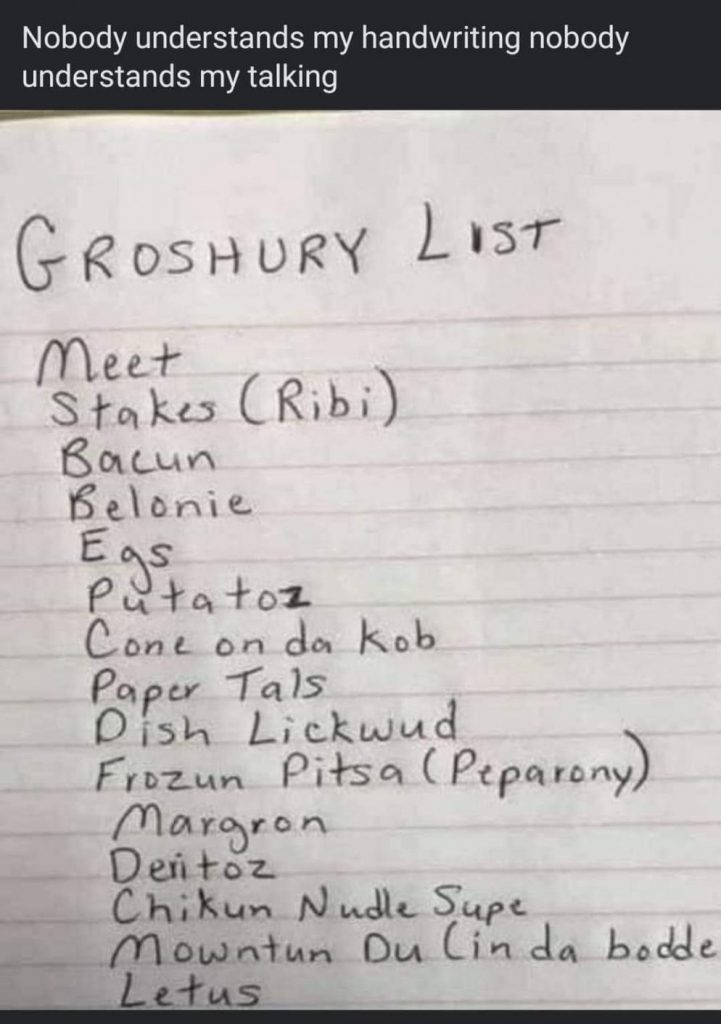 Nobody understands my handwriting nobody
understands my talking
GROSHURY LIST
Meet
Stakes (Ribi)
Bacun
Belonie
Egs
Putatoz
Cone on da kob
Paper Tals
Dish Lickwud
Frozun Pitsa (Peparony)
Margron
Deritoz
Chikun Nudle Supe
Mowntun Du (in da bodde
Letus